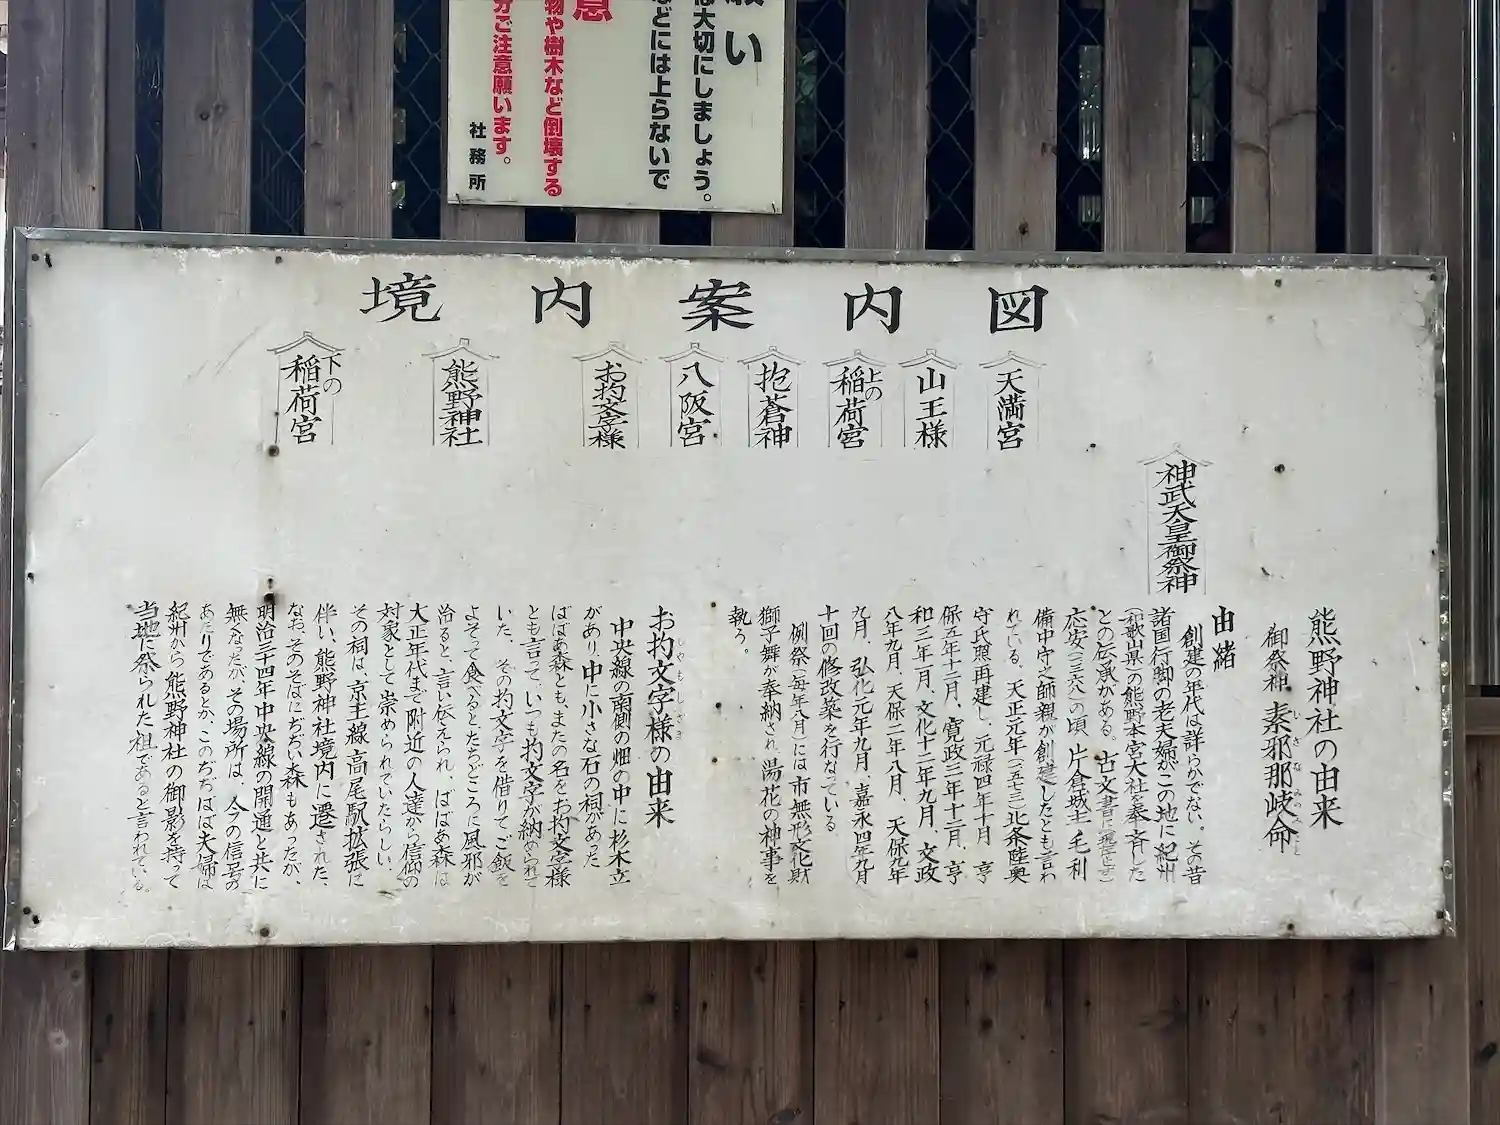 願い
は大切にしましょう。
などには上らないで
意
物や樹木など倒壊する
分ご注意願います。
社務所
境内案内図
下の稲荷宮
熊野神社
お杓文字様
八阪宮
抱蒼神
上の稲荷宮
山王様
天満宮
神武天皇御祭神
熊野神社の由来
御祭神 素邪那岐命
いさなみのみこと
由緒
創建の年代は詳らかでない。その昔
諸国行脚の老夫婦がこの地に紀州
(和歌山県)の熊野本宮大社を奉斉した
との伝承がある。古文書に
応安(一三六八)の頃、片倉城主毛利
備中守之師親が創建したとも言わ
れている。天正元年(一五七三)北条陸奥
守氏照再建し、元禄四年十月 亨
保五年十二月、寛政三年十二月、亨
和三年二月、文化十二年九月、文政
八年九月、天保二年八月、天保九年
九月、弘化元年九月、嘉永四年九月
十回の修改築を行なっている
例祭(毎年八月)には市無形文化財
獅子舞が奉納され湯花の神事を
執う。
お杓文字様の由来
しゃもじさま
中央線の南側の畑の中に杉木立
があり、中に小さな石の祠があった
ばばあ森とも、またの名をお杓文字様
とも言って、いつも杓文字が納められて
いた。その杓文字を借りてご飯を
よそって食べるとたちどころに風邪が
治ると、言い伝えられ、ばばあ森は
大正年代まで附近の人達から信仰の
対象として崇められていたらしい。
その祠は、京王線高尾駅拡張に
伴い、熊野神社境内に遷された、
なお、そのそばにぢぢい森もあったが、
明治三十四年中央線の開通と共に
無くなったが、その場所は、今の信号の
あたりであるとか、このぢぢばば夫婦は
紀州から熊野神社の御影を持って
当地に祭られた祖であると言われている。